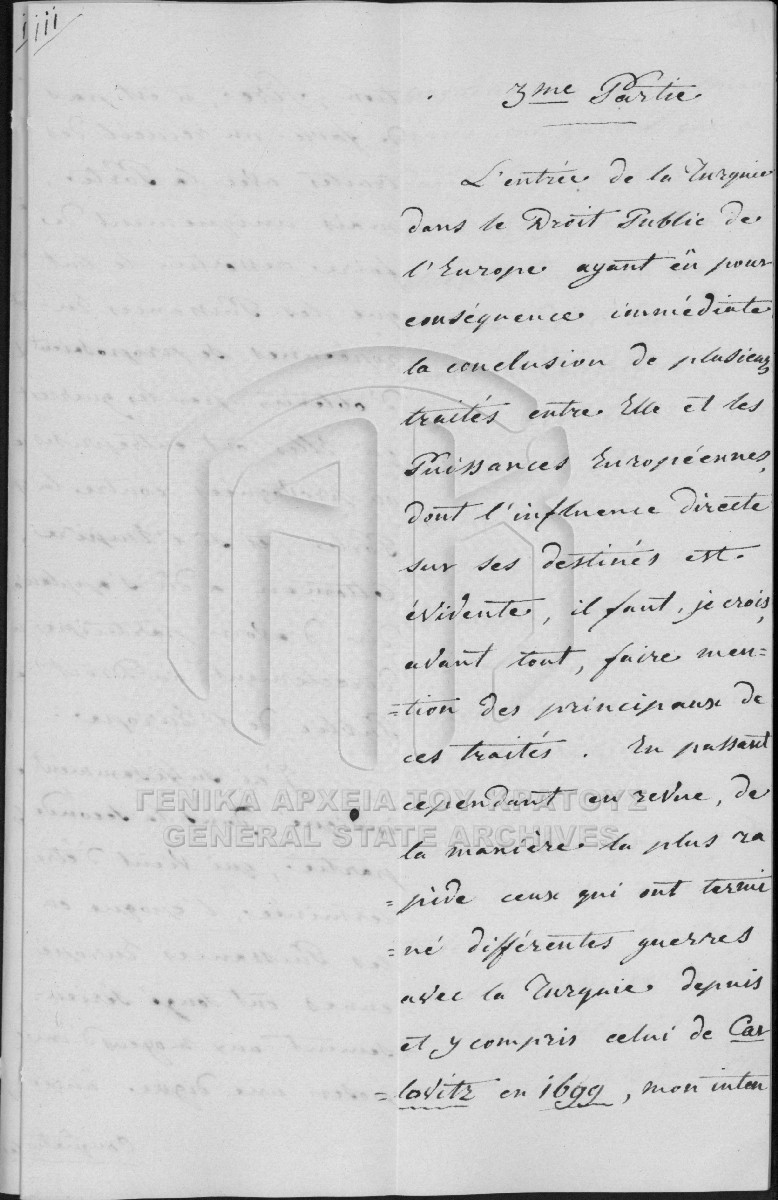 iii
3me Partie
L'entrée de la Turquie
dans le Droit Public de
l'Europe ayant eü pour
conséquence immédiate
la conclusion de plusieurs
traités entre Elle et les
Puissances Européennes,
dont l'influence directe
sur ses destinés est
évidente, il faut, je crois,
avant tout, faire men=
=tion des principaux de
ces traités. En passant
cependant en revue, de
la manière la plus ra
=pide ceux qui ont termi
=né différentes guerres
avec la Turquie depuis
et y compris celui de Car
=lovitz en 1699, mon inten
ΓΕΝΙΚΑ ΑΡΧΕΙΑ ΤΟΥ ΚΡΑΤΟΥΣ
GENERAL STATE ARCHIVES